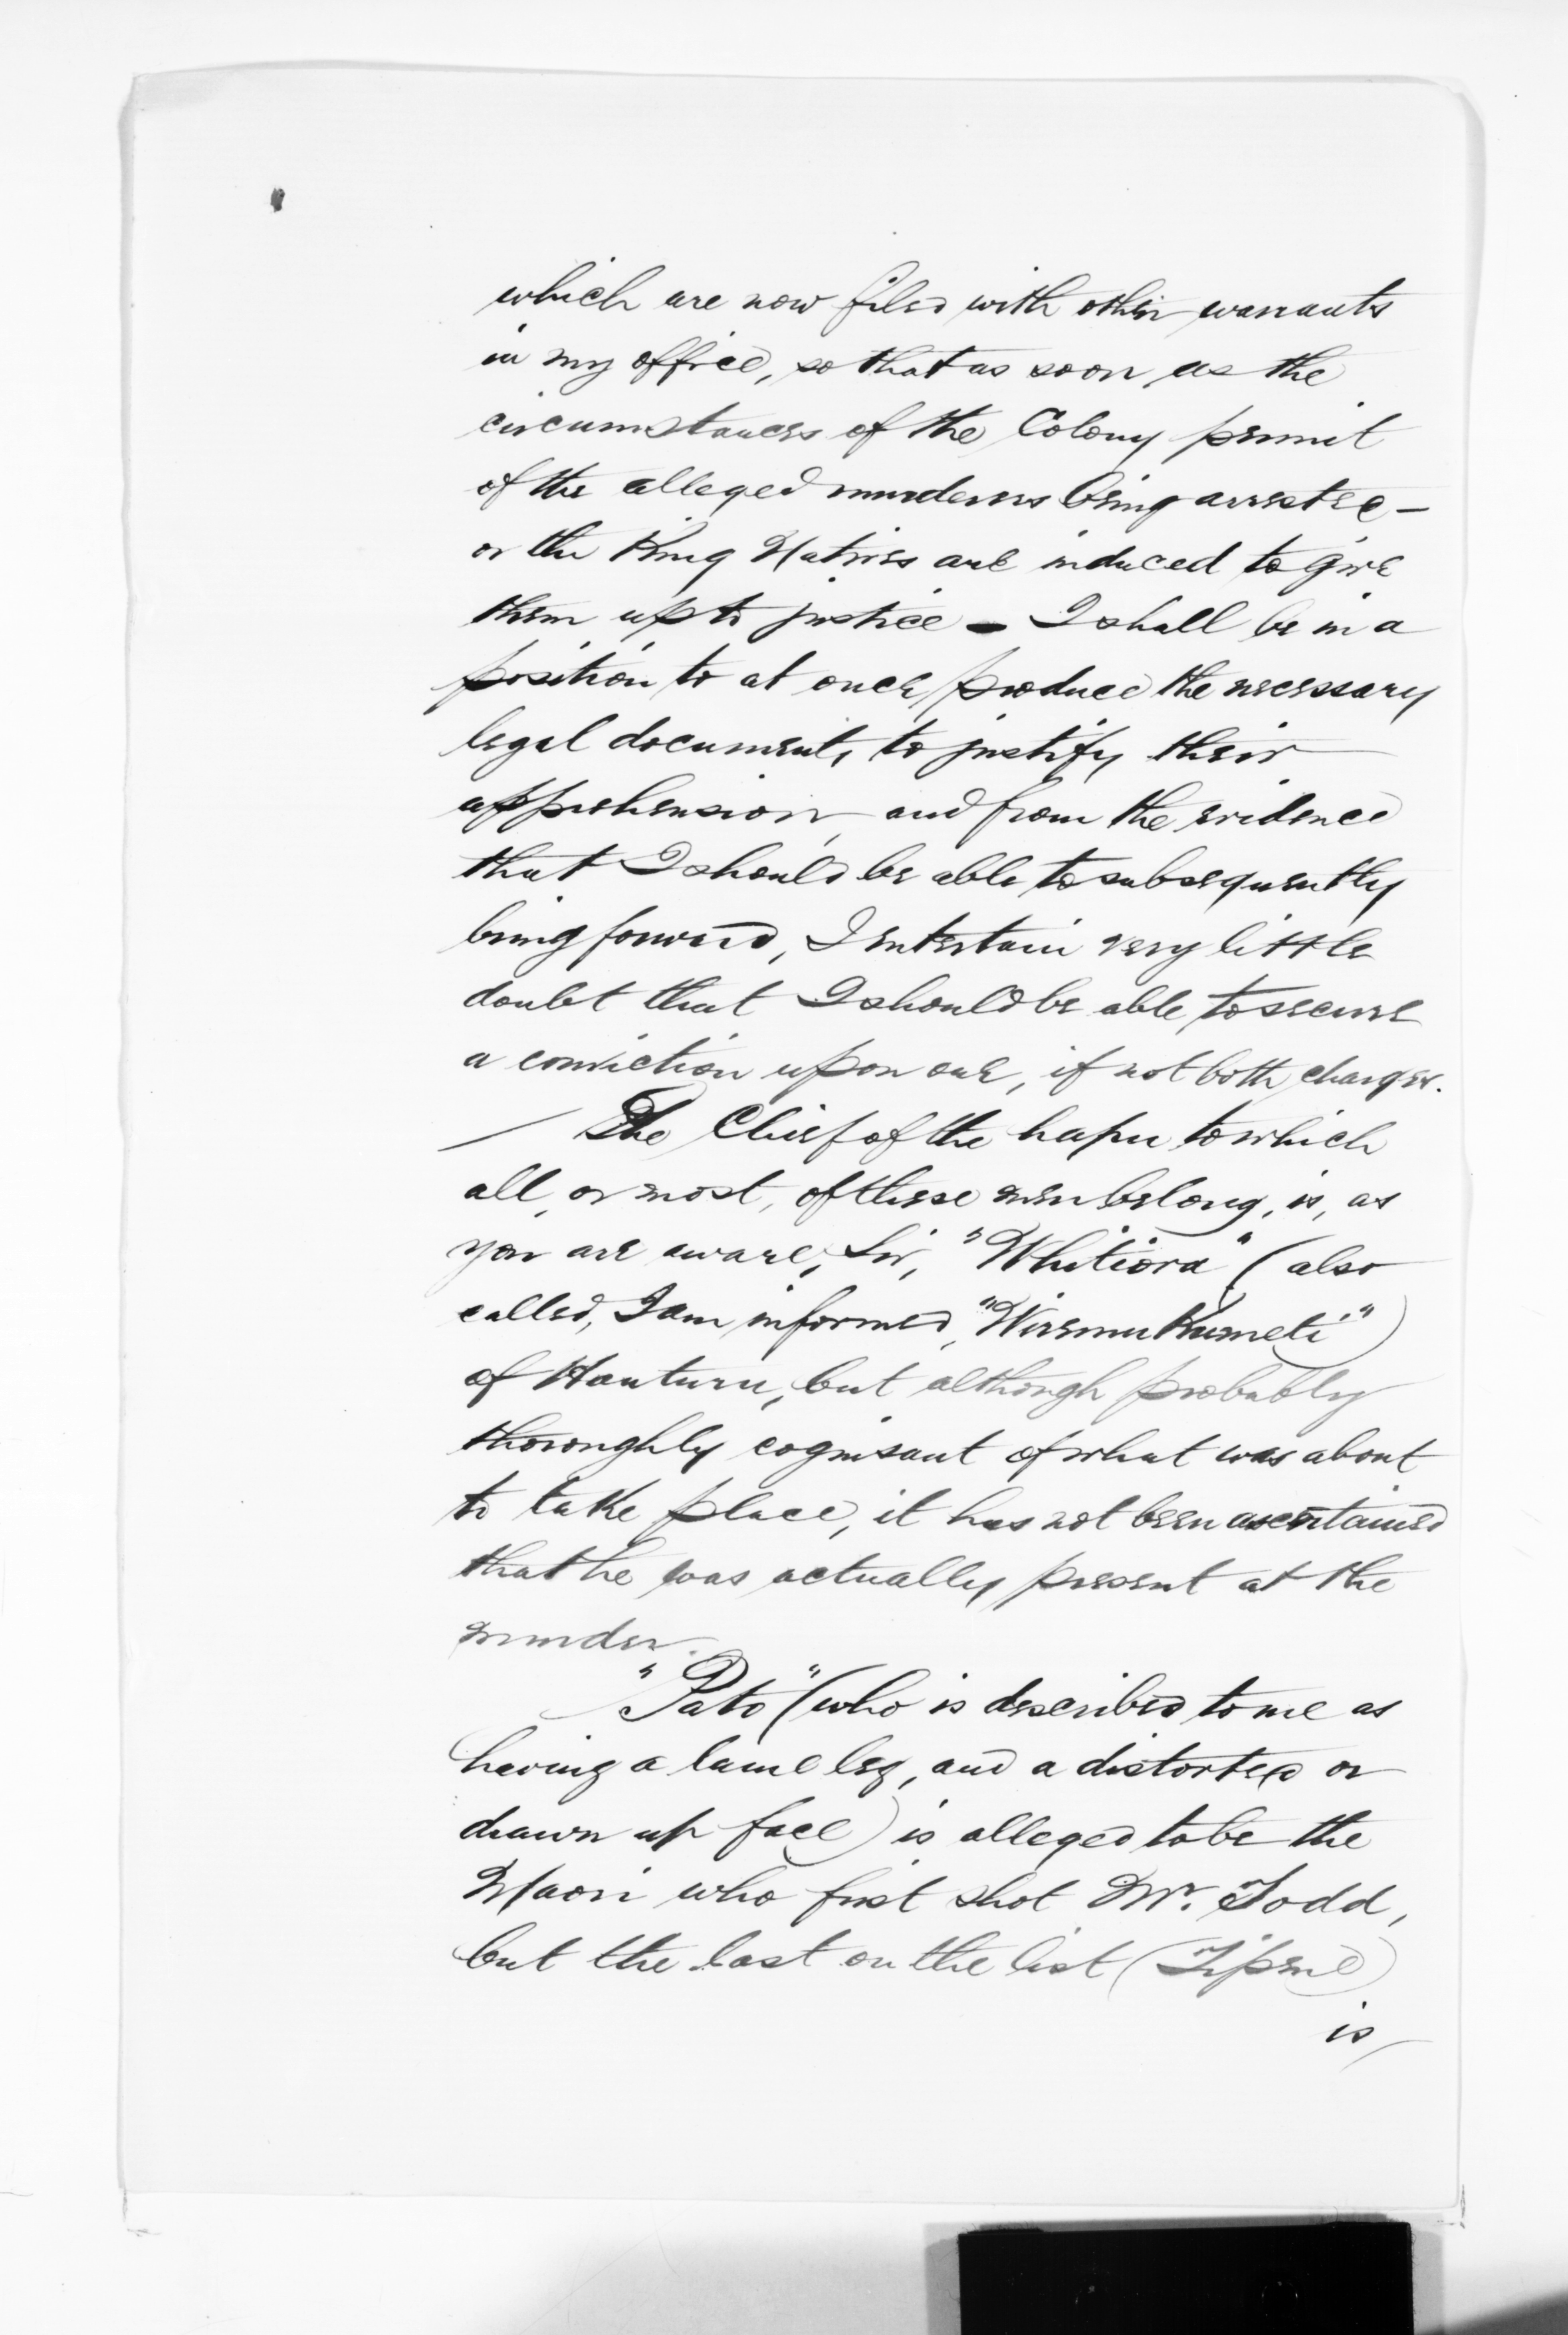 which are now filed with other warrants
in my office, so that as soon as the
circumstances of the Colony permit
of the alleged murderers being arrested —
or the King Natives are induced to give
them up to justice — I shall be in a
position to at once produce the necessary
legal documents to justify their
apprehension, and from the evidence
that I should be able to subsequently
bring forward, I entertain very little
doubt that I should be able to secure
a conviction upon one, if not both charges.
The Chief of the hapu to which
all, or most, of these men belong, is, as
you are aware, Sir, "Whitiora" (also
called, I am informed, "Wiremu Kumeti")
of Hauturu, but although probably
thoroughly cognisant of what was about
to take place, it has not been ascertained
that he was actually present at the
murder.
"Pato" (who is described to me as
having a lame leg, and a distorted or
drawn up face) is alleged to be the
Maori who first shot Mr. Todd,
but the last on the list (Tipene)
is